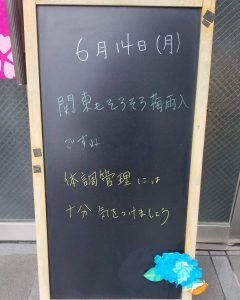 6月14日(月)
関東もそろそろ梅雨入
ですね
体調管理には
十分 気をつけましょう